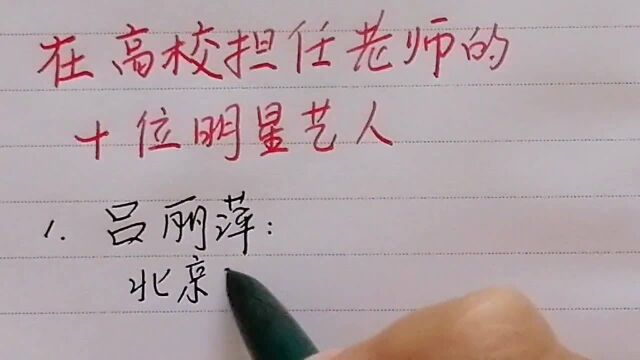 在高校担任老师的
十位明星艺人
1. 吕丽萍:
北京